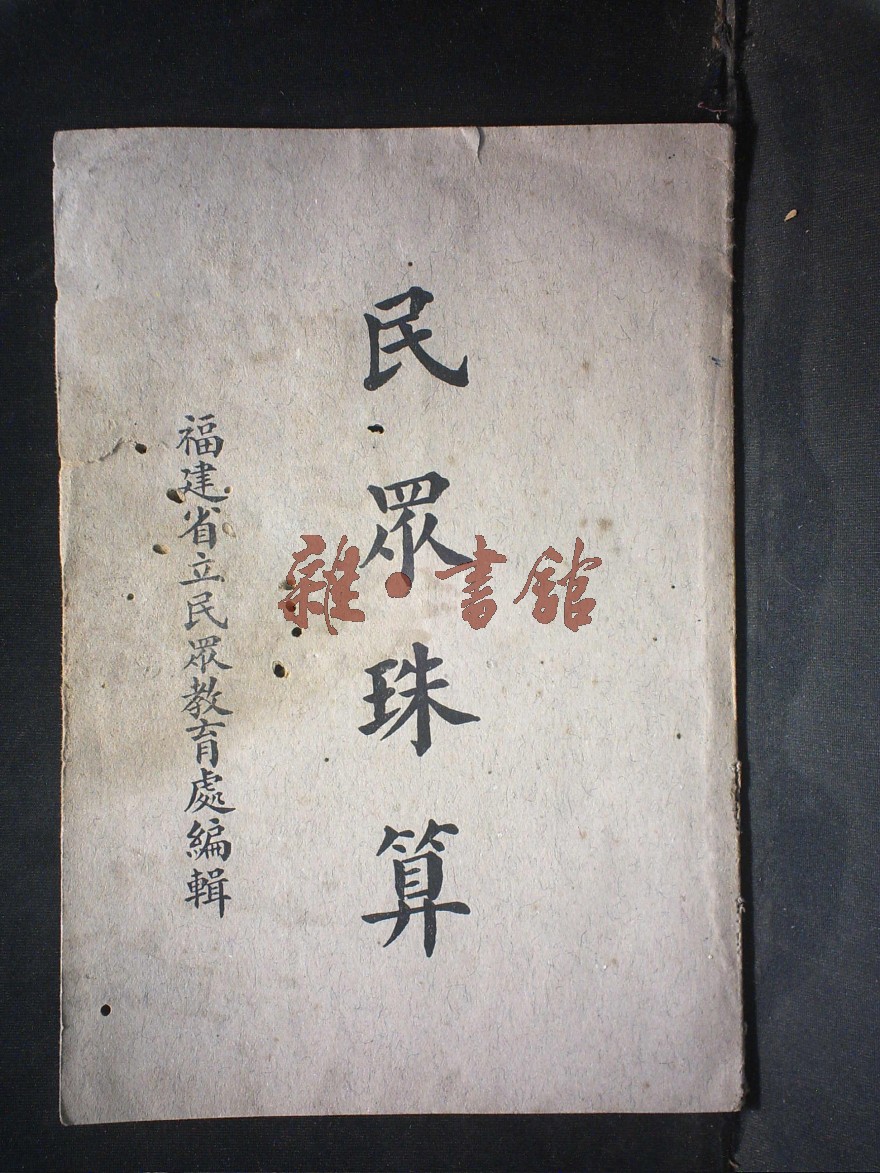 民眾珠算
福建省立民眾教育處編輯
雜·書館